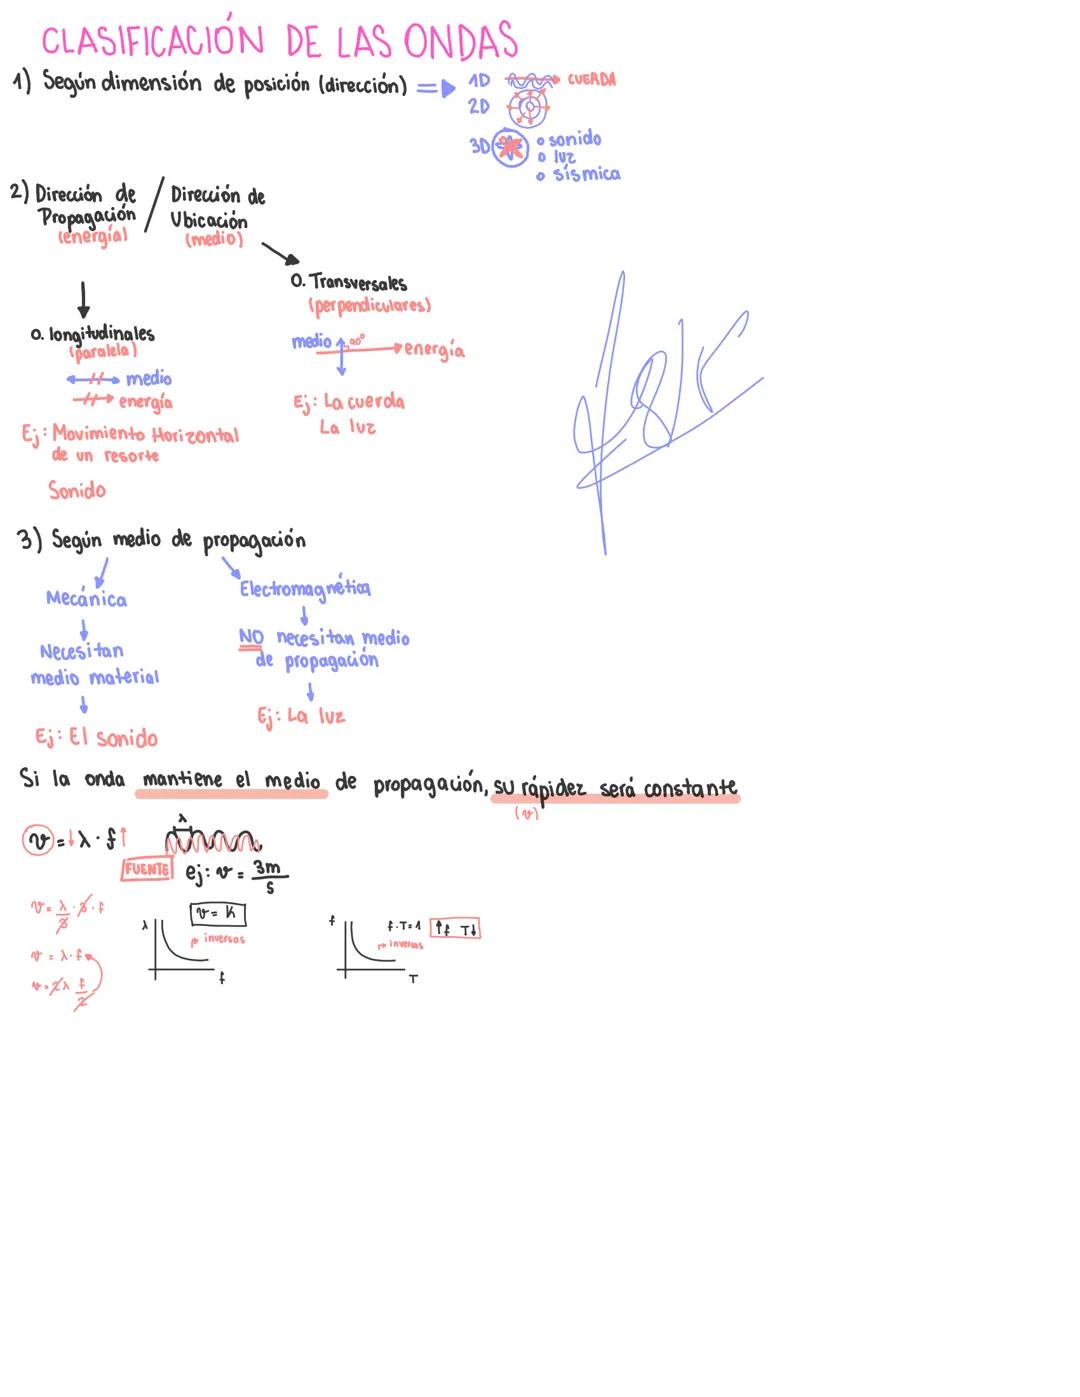 CLASIFICACIÓN DE LAS ONDAS
1) Según dimensión de posición (dirección) ⇒ 1D CUERDA
2D
3D
o sonido
o luz
o sísmica
2) Dirección de Propagación (energía) / Dirección de Ubicación (medio)
O. Transversales
(perpendiculares)
medio 90° energía
Ej: La cuerda
La luz
O. longitudinales
(paralela)
medio
energía
Ej: Movimiento Horizontal
de un resorte
Sonido
3) Según medio de propagación
Mecánica
Necesitan
medio material
Ej: El sonido
Electromagnética
NO necesitan medio
de propagación
Ej: La luz
Si la onda mantiene el medio de propagación, su rápidez será constante
(v)
v = ↓ λ · f ↑
λ
FUENTE
ej: v = 3m/s
v = λ/3 · 3 · f
v = λ · f
v = 2λ f/2
v = K
inversas
λ
f
f · T = 1
↑f T↓
inversas
f
T